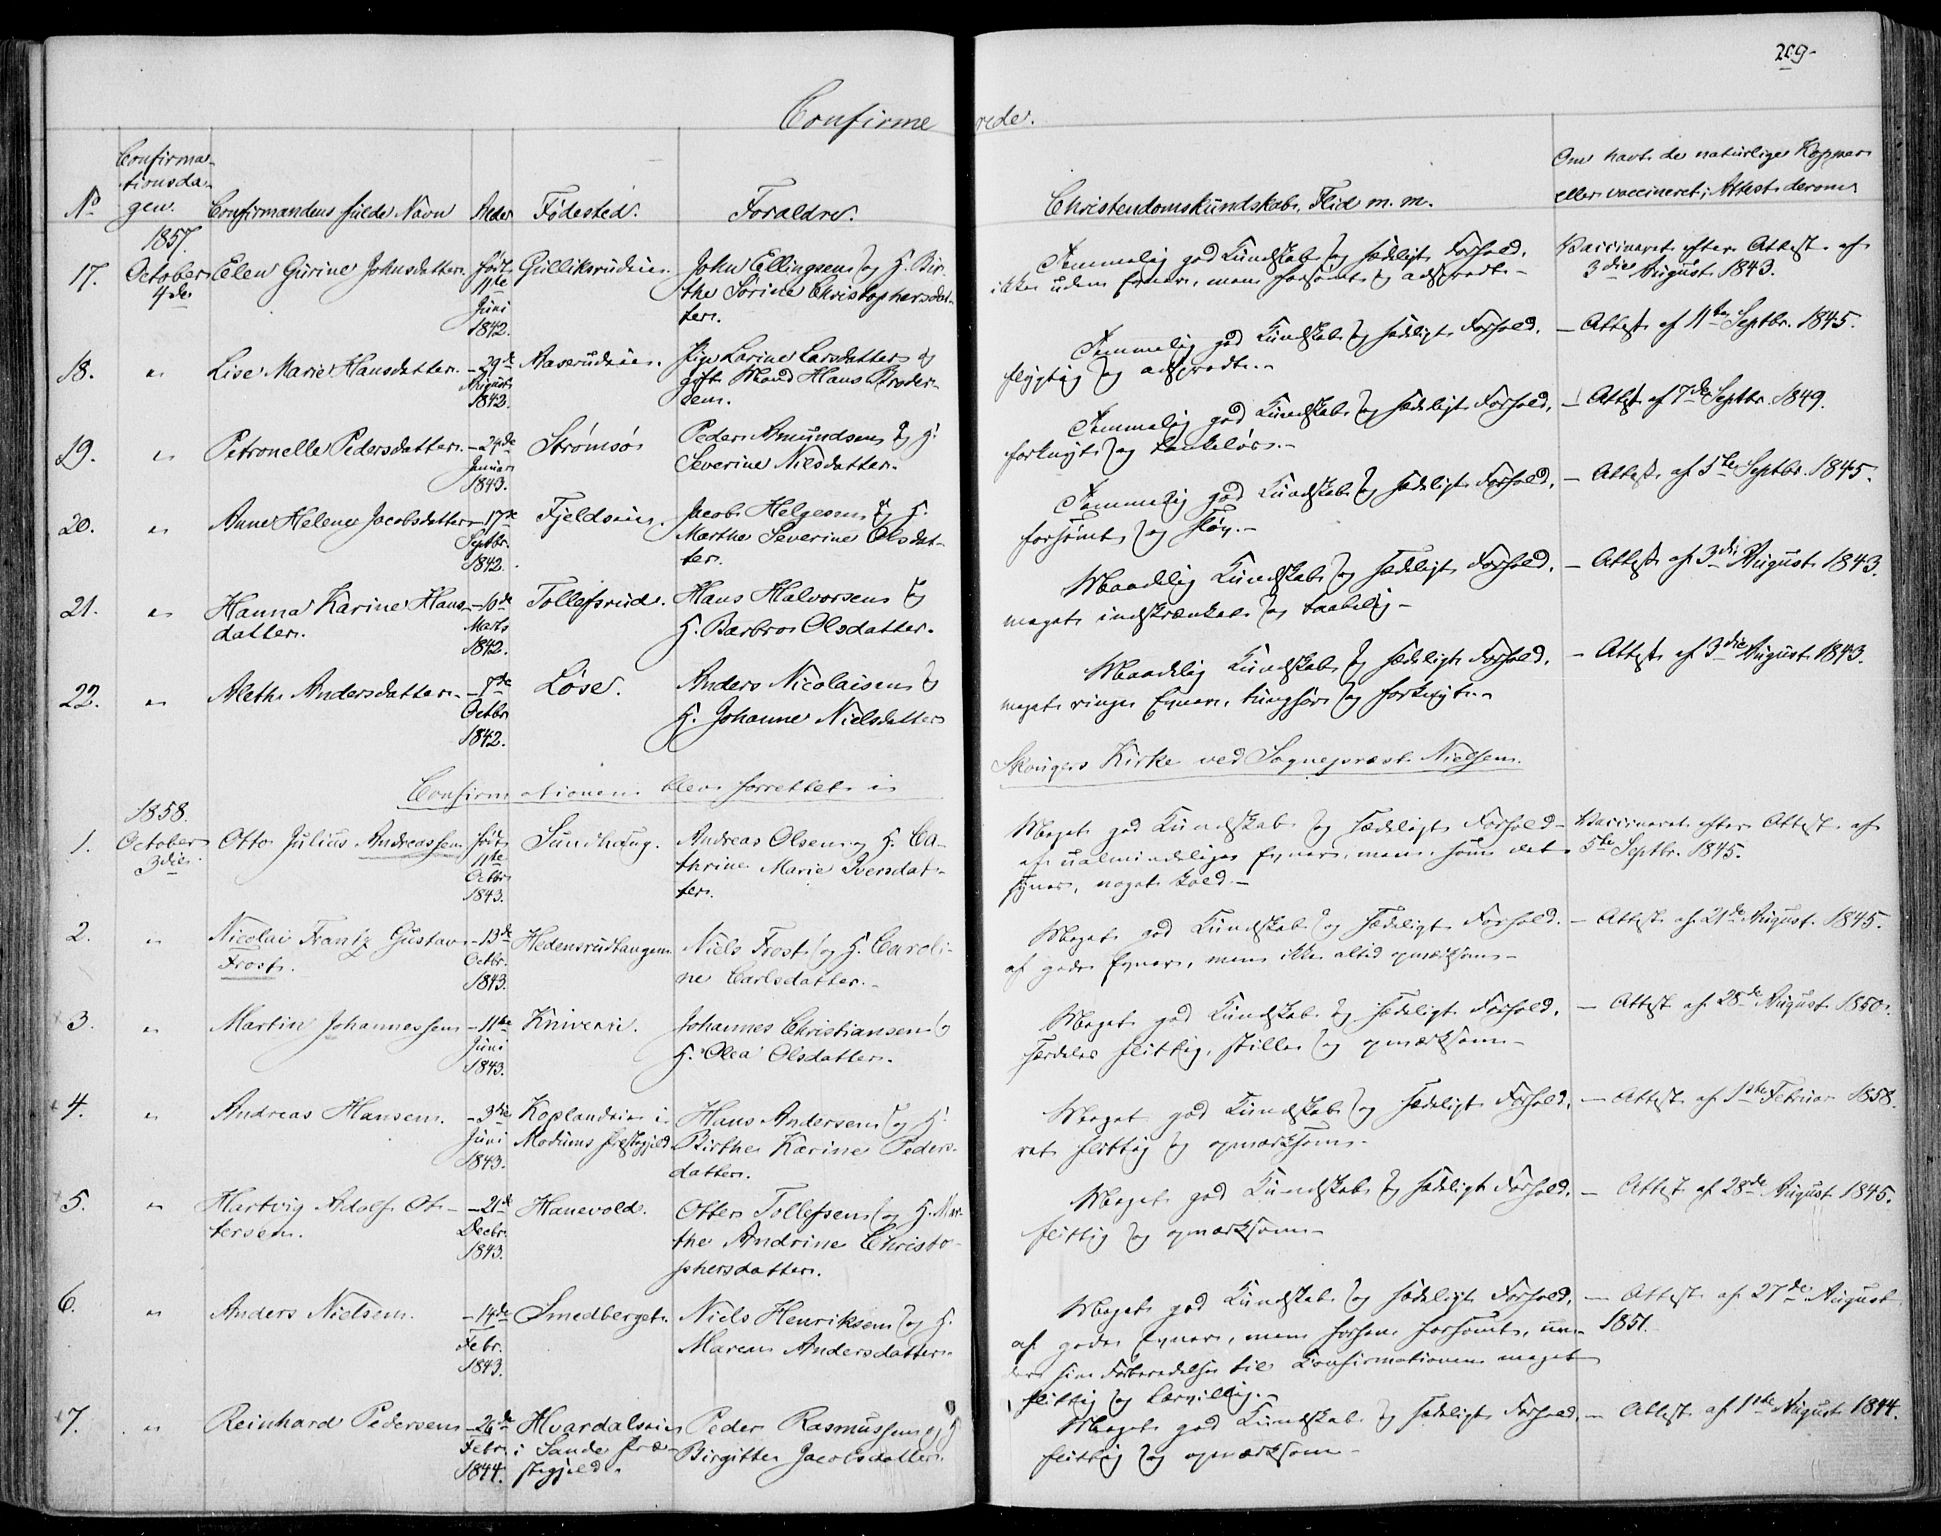 209-
Confirmerede.
No
Confirmationsdagen.
Confirmandens fulde Navn
Alder
Fødested.
Forældre.
Christendomskundskab, Flid m. m.
Om havt de naturlige Kopper
eller vaccineret; Attest derom
1857.
17. October 4de Elen Gurine Johnsdatter. født 11te Juni 1842. Gulliksrudeie. John Ellingsen og H. Birthe Sorine Christophersdatter.
Temmelig god Kundskab og sædeligt Forhold,
ikke uden Evner, men forsømt og adspredt-
Vaccineret efter Attest af
3die August 1843.
18. " Lise Marie Hansdatter. - 29de August 1842. Aaserudeie. Pige Larine Larsdatter og
gift Mand Hans Brodersen.
Temmelig god Kundskab og sædeligt Forhold,
flygtig og adspredt.-
- Attest af 11te Septbr. 1845.
19. " Petronelle Pedersdatter. - 24de Januar 1843. Strømsø Peder Amundsen og H.
Severine Nilsdatter.
Temmelig god Kundskab og sædeligt Forhold,
forknyt og tankeløs.-
- Attest af 7de Septbr. 1849.
20. " Anne Helene Jacobsdatter - 17de Septbr. 1842. Fjeldseie. Jacob Helgesen og H.
Marthe Severine Olsdatter.
Temmelig god Kundskab og sædeligt Forhold,
forsømt og sløv.-
- Attest af 5te Septbr. 1845.
21. " Hanna Karine Hansdatter. - 10de Marts 1842. Tollefsrud. Hans Halvorsen og
H. Barbro Olsdatter.
Maadelig Kundskab og sædeligt Forhold,
meget indskrænket og taabelig-
- Attest af 3die August 1843.
22. " Aleth Andersdatter. - 7de Octbr 1842. Løse. Anders Nicolaisen og
H. Johanne Nielsdatter
Maadelig Kundskab og sædeligt Forhold,
meget ringe Evner, tunghør og forknyt.-
- Attest af 3die August 1843.
Confirmationen blev forrettet i Skougers Kirke ved Sognepræst Nielsen.
1858.
1. October 3die. Otto Julius Andreassen født 11te Octbr 1843. Sundhaug. Andreas Olsen og H. Cathrine Marie Iversdatter.
Meget god Kundskab og sædeligt Forhold-
af ualmindelige Evner, men, som det
synes, noget kold.-
Vaccineret efter Attest af
5te Septbr. 1845.
2. " Nicolai Frantz Gustav Frost. - 13de Octbr. 1843. Hedensrudtangen Niels Frost og H. Caroline Carlsdatter.-
Meget god Kundskab og sædeligt Forhold.
af gode Evner, men ikke altid opmærksom-
- Attest af 21de August 1845.
3. " Martin Johannessen - 11te Juni 1843. Kniveeie. Johannes Christiansen og
H. Olea Olsdatter.
Meget god Kundskab og sædeligt Forhold,
særdeles flittig, stille og opmærksom-
- Attest af 28de August 1850.
4. " Andreas Hansen. - 3die Juni 1843. Koplandeie i
Modums Præstegjeld Hans Andersen og H.
Birthe Karine Pedersdatter.
Meget god Kundskab og sædeligt Forhold,
ret flittig og opmærksom-
- Attest af 1ste Februar 1858.
5. " Hartvig Adolf Ottersen. - 21de Decbr. 1843. Hanevold. Otter Tollefsen og H. Marthe Andrine Christophersdatter.
Meget god Kundskab og sædeligt Forhold,
flittig og opmærksom-
- Attest af 28de August 1845.
6. " Anders Nielsen. - 14de Febr. 1843. Smedberget. Niels Henriksen og H.
Maren Andersdatter.
Meget god Kundskab og sædeligt Forhold,
af gode Evner, men forhen forsømt, under sin Forberedelse til Konfirmationen meget
flittig og lærvillig.-
- Attest af 27de August
1851.
7. " Reinhard Pedersen - 26de Febr. 1844. Hvardalseie
i Sande Præstegjeld. Peder Rasmussen og H
Birgitte Jacobsdatter.
Meget god Kundskab og sædeligt Forhold,
flittig og opmærksom-
- Attest af 1ste August 1844.